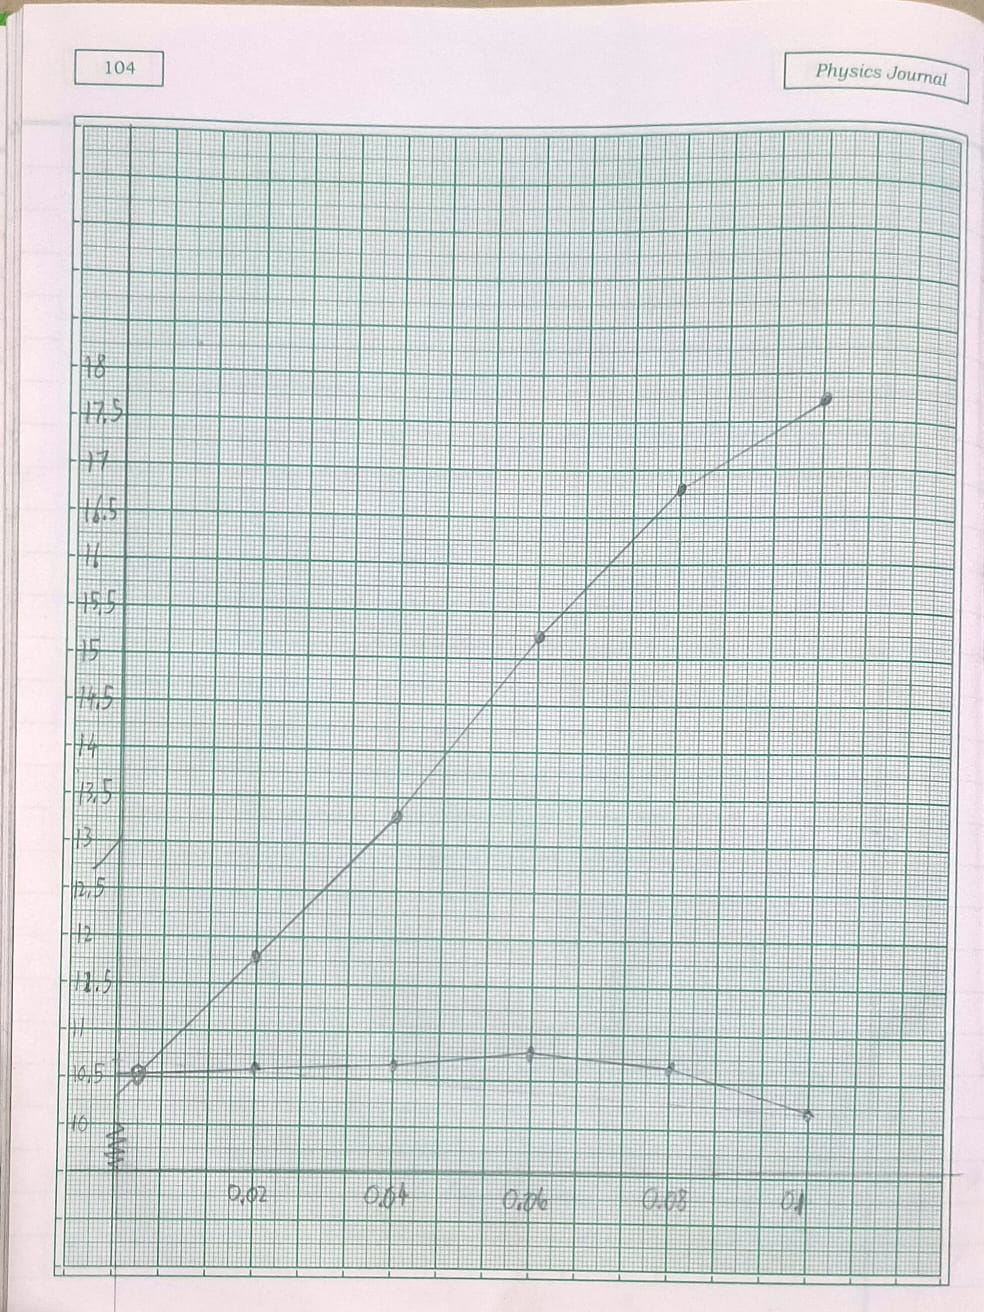 104
Physics Journal
18
17.5
17
16.5
16
15.5
15
14.5
14
13.5
13
12.5
12
11.5
11
10.5
10
0.02
0.04
0.06
0.08
0.1